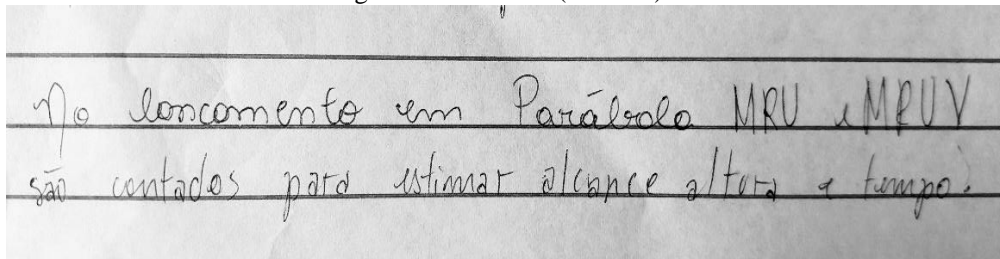 No lançamento em Parábola MRU e MRUV
são contados para estimar alcance altura e tempo.